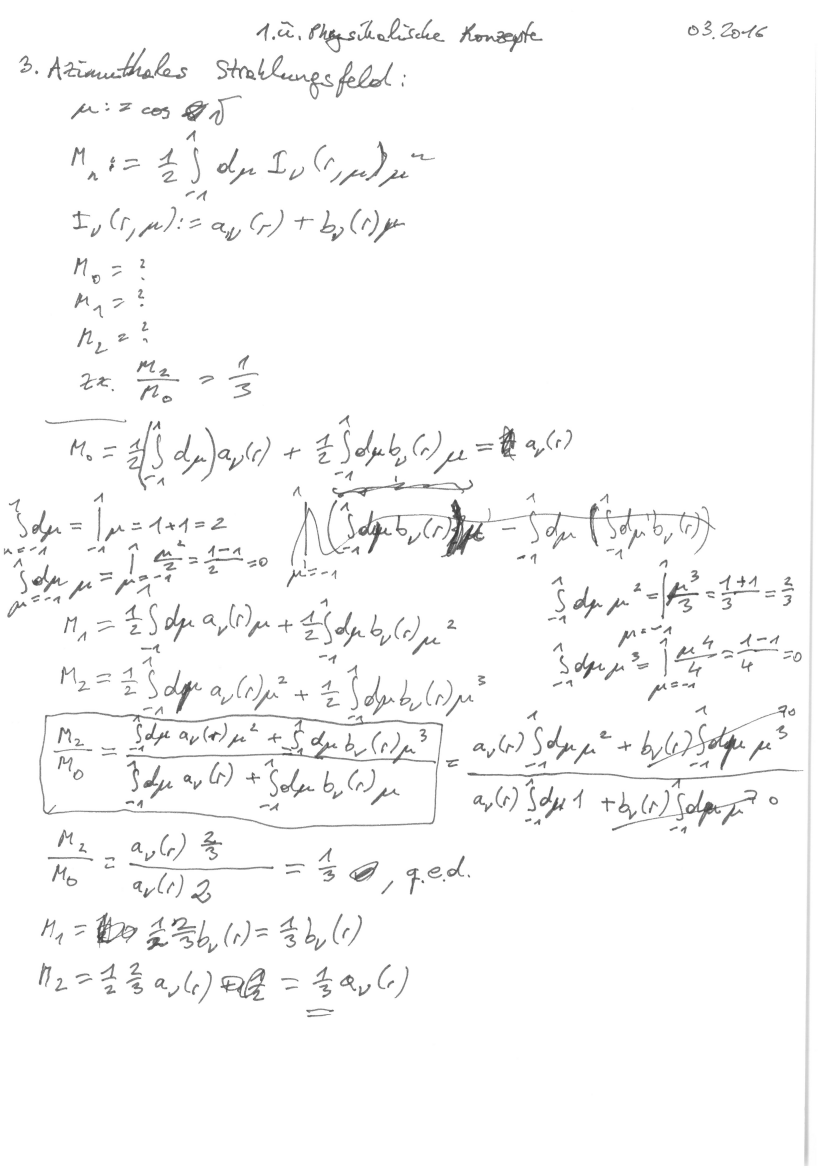 1.Ü. Physikalische Konzepte 03.2016
3. Azimuthales Strahlungsfeld:
μ := cos ϑ
M_n := 1/2 ∫_{-1}^{1} dμ I_ν(r,μ) μ^n
I_ν(r,μ) := a_ν(r) + b_ν(r)μ
M_0 = ?
M_1 = ?
M_2 = ?
zz. M_2/M_0 = 1/3
M_0 = 1/2 (∫_{-1}^{1} dμ) a_ν(r) + 1/2 ∫_{-1}^{1} dμ b_ν(r) μ = a_ν(r)
∫_{μ=-1}^{1} dμ = |_{-1}^{1} μ = 1+1 = 2
|_{μ=-1}^{1} (∫_{-1}^{1} dμ b_ν(r)) μ - ∫_{-1}^{1} dμ (∫_{-1}^{1} dμ' b_ν(r))
∫_{μ=-1}^{1} dμ μ = |_{μ=-1}^{1} μ²/2 = (1-1)/2 = 0
∫_{-1}^{1} dμ μ² = |_{μ=-1}^{1} μ³/3 = (1+1)/3 = 2/3
M_1 = 1/2 ∫_{-1}^{1} dμ a_ν(r)μ + 1/2 ∫_{-1}^{1} dμ b_ν(r) μ²
∫_{-1}^{1} dμ μ³ = |_{μ=-1}^{1} μ⁴/4 = (1-1)/4 = 0
M_2 = 1/2 ∫_{-1}^{1} dμ a_ν(r)μ² + 1/2 ∫_{-1}^{1} dμ b_ν(r)μ³
M_2/M_0 = (∫_{-1}^{1} dμ a_ν(r) μ² + ∫_{-1}^{1} dμ b_ν(r) μ³)/(∫_{-1}^{1} dμ a_ν(r) + ∫_{-1}^{1} dμ b_ν(r) μ) = (a_ν(r) ∫_{-1}^{1} dμ μ² + b_ν(r) ∫_{-1}^{1} dμ μ³ → 0)/(a_ν(r) ∫_{-1}^{1} dμ 1 + b_ν(r) ∫_{-1}^{1} dμ μ → 0)
M_2/M_0 = (a_ν(r) 2/3)/(a_ν(r) 2) = 1/3 , q.e.d.
M_1 = 1/2 2/3 b_ν(r) = 1/3 b_ν(r)
M_2 = 1/2 2/3 a_ν(r) = 1/3 a_ν(r)